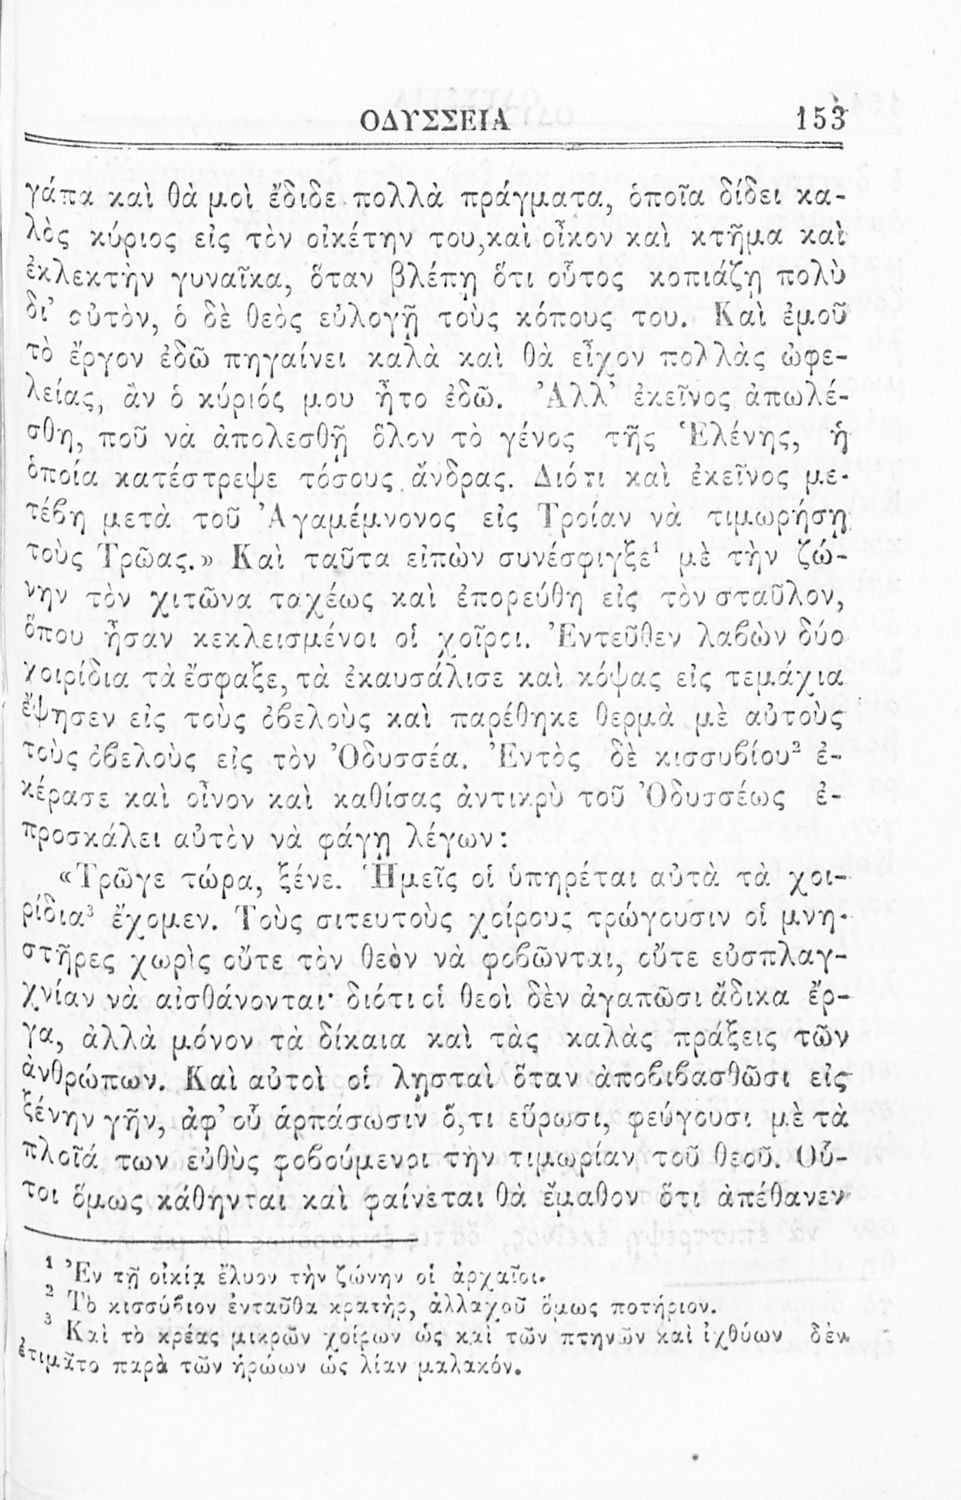 ΟΔΥΣΣΕΙΑ 153
γάπα καὶ θὰ μοὶ ἔδιδε πολλὰ πράγματα, ὁποῖα δίδει κα-
λὸς κύριος εἰς τὸν οἰκέτην του, καὶ οἶκον καὶ κτῆμα καὶ
ἐκλεκτὴν γυναῖκα, ὅταν βλέπῃ ὅτι οὗτος κοπιάζῃ πολὺ
δι' αὐτὸν, ὁ δὲ θεὸς εὐλογῇ τοὺς κόπους του. Καὶ ἐμοῦ
τὸ ἔργον ἐδῶ πηγαίνει καλὰ καὶ θὰ εἶχον πολλὰς ὠφε-
λείας, ἂν ὁ κύριός μου ἦτο ἐδῶ. Ἀλλ' ἐκεῖνος ἀπωλέ-
σθη, ποῦ νὰ ἀπολεσθῇ ὅλον τὸ γένος τῆς Ἑλένης, ἡ
ὁποία κατέστρεψε τόσους ἄνδρας. Διότι καὶ ἐκεῖνος με-
τέβη μετὰ τοῦ Ἀγαμέμνονος εἰς Τροίαν νὰ τιμωρήσῃ
τοὺς Τρῶας.» Καὶ ταῦτα εἰπὼν συνέσφιγξε¹ μὲ τὴν ζώ-
νην τὸν χιτῶνα ταχέως καὶ ἐπορεύθη εἰς τὸν σταῦλον,
ὅπου ἦσαν κεκλεισμένοι οἱ χοῖροι. Ἐντεῦθεν λαβὼν δύο
χοιρίδια τὰ ἔσφαξε, τὰ ἐκαυσάλισε καὶ κόψας εἰς τεμάχια
ἔψησεν εἰς τοὺς ὀβελοὺς καὶ παρέθηκε θερμὰ μὲ αὐτοὺς
τοὺς ὀβελοὺς εἰς τὸν Ὀδυσσέα. Ἐντὸς δὲ κισσυβίου² ἐ-
κέρασε καὶ οἶνον καὶ καθίσας ἀντικρὺ τοῦ Ὀδυσσέως ἐ-
προσκάλει αὐτὸν νὰ φάγῃ λέγων:
«Τρῶγε τώρα, ξένε. Ἡμεῖς οἱ ὑπηρέται αὐτὰ τὰ χοι-
ρίδια³ ἔχομεν. Τοὺς σιτευτοὺς χοίρους τρώγουσιν οἱ μνη-
στῆρες χωρὶς οὔτε τὸν θεὸν νὰ φοβῶνται, οὔτε εὐσπλαγ-
χνίαν νὰ αἰσθάνονται· διότι οἱ θεοὶ δὲν ἀγαπῶσι ἄδικα ἔρ-
γα, ἀλλὰ μόνον τὰ δίκαια καὶ τὰς καλὰς πράξεις τῶν
ἀνθρώπων. Καὶ αὐτοὶ οἱ λῃσταὶ ὅταν ἀποβιβασθῶσι εἰς
ξένην γῆν, ἀφ' οὗ ἁρπάσωσιν ὅ,τι εὕρωσι, φεύγουσι μὲ τὰ
πλοῖά των εὐθὺς φοβούμενοι τὴν τιμωρίαν τοῦ θεοῦ. Οὗ-
τοι ὅμως κάθηνται καὶ φαίνεται θὰ ἔμαθον ὅτι ἀπέθανεν
¹ Ἐν τῇ οἰκίᾳ ἔλυον τὴν ζώνην οἱ ἀρχαῖοι.
² Τὸ κισσύβιον ἐνταῦθα κρατὴρ, ἀλλαχοῦ ὅμως ποτήριον.
³ Καὶ τὸ κρέας μικρῶν χοίρων ὡς καὶ τῶν πτηνῶν καὶ ἰχθύων δὲν
ἐτιμᾶτο παρὰ τῶν ἡρώων ὡς λίαν μαλακόν.